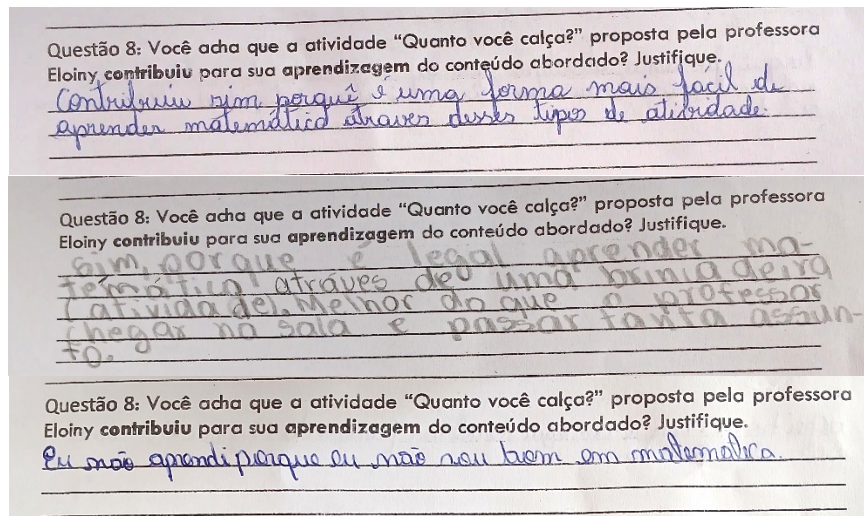 Questão 8: Você acha que a atividade “Quanto você calça?” proposta pela professora
Eloiny contribuiu para sua aprendizagem do conteúdo abordado? Justifique.
Contribuiu sim porquê é uma forma mais facil de
aprender matemática atraves desses tipos de atividade.
Questão 8: Você acha que a atividade “Quanto você calça?” proposta pela professora
Eloiny contribuiu para sua aprendizagem do conteúdo abordado? Justifique.
Sim, porque é legal aprender ma-
temática atráves de uma brincadeira
(atividade). Melhor do que o professor
chegar na sala e passar tanta assun-
to.
Questão 8: Você acha que a atividade “Quanto você calça?” proposta pela professora
Eloiny contribuiu para sua aprendizagem do conteúdo abordado? Justifique.
Eu não aprendi porque eu não sou bem em matemática.